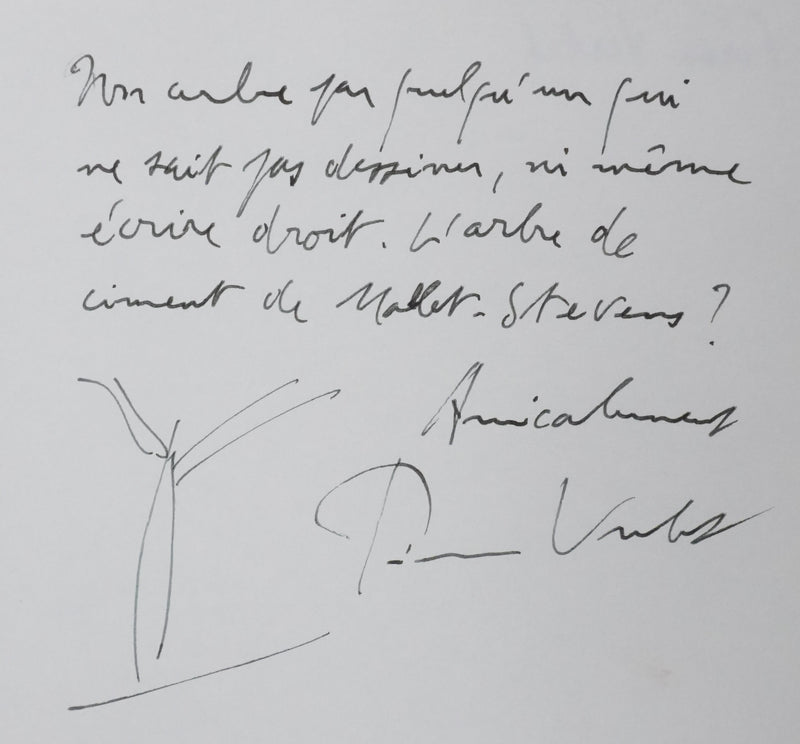 Mon arbre par quelqu'un qui
ne sait pas dessiner, ni même
écrire droit. L'arbre de
ciment de Mallet-Stevens ?
Amicalement
Pierre